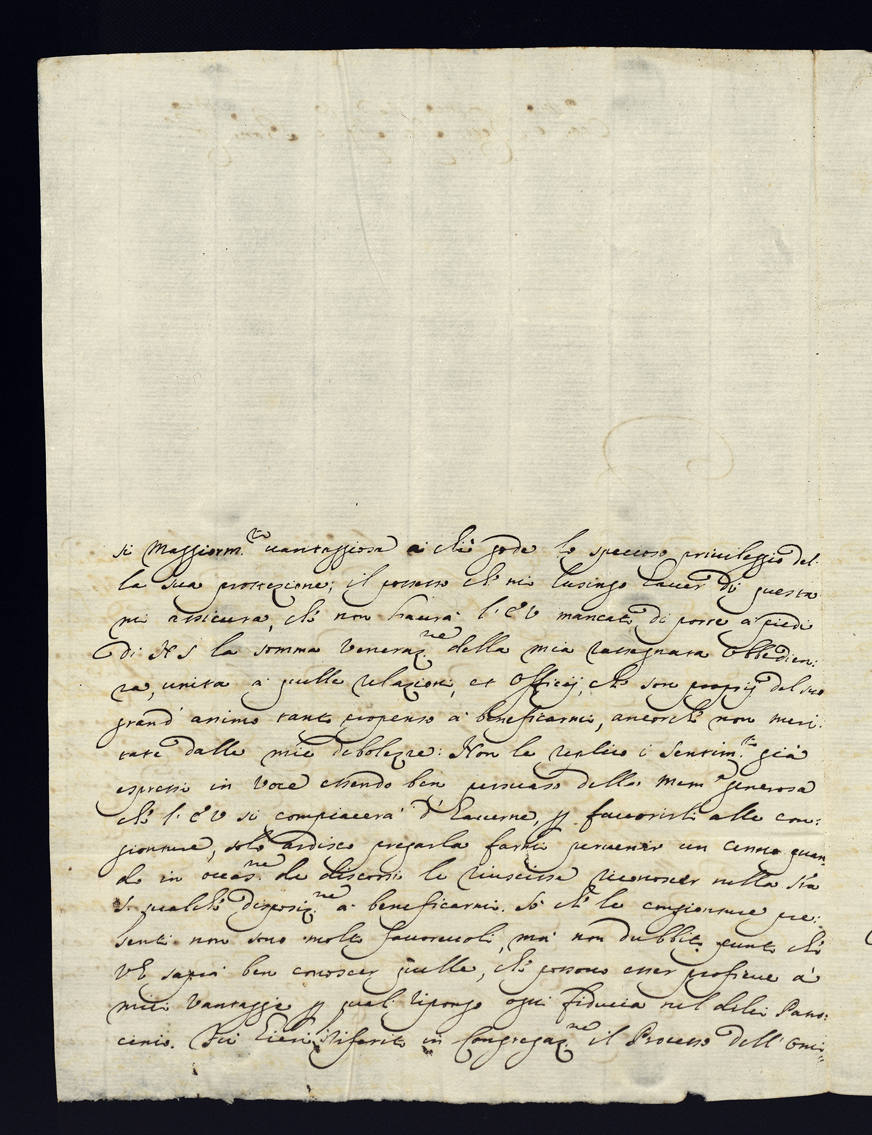 si maggiorm.te vantaggiosa a chi gode lo specioso privileggio del:
la sua protezione; il possesso che mi lusingo haver di questa
mi assicura, che non haurà l'E V mancato di porre a' piedi
di N S la somma veneraz.ne della mia rassegnata obbedien:
za, unita a quelle relazioni, et officij, che son proprij del suo
grand' animo tanto propenso a beneficarmi, ancorche non meri:
tate dalle mie debolezze: Non le replico i sentim.ti già
espressi in voce essendo ben persuaso della mem.a generosa
che l'E V si compiacerà d'haverne, p favorirli alle con:
gionture, solo ardisco pregarla farmi pervenir un cenno quan:
do in occas.ne de discorsi le riuscisse riconoscer nella S.tà
S. qualche disposiz.ne a beneficarmi. Sò che le congionture pre:
senti non sono molto favorevoli, mà non dubbito punto che
VE saprà ben conoscer quelle, che possono esser proficue a'
miei vantaggi p quali ripongo ogni fiducia nel di lei Patro:
cinio. Fù hieri riferito in Congregaz.ne il Processo dell' Omi: